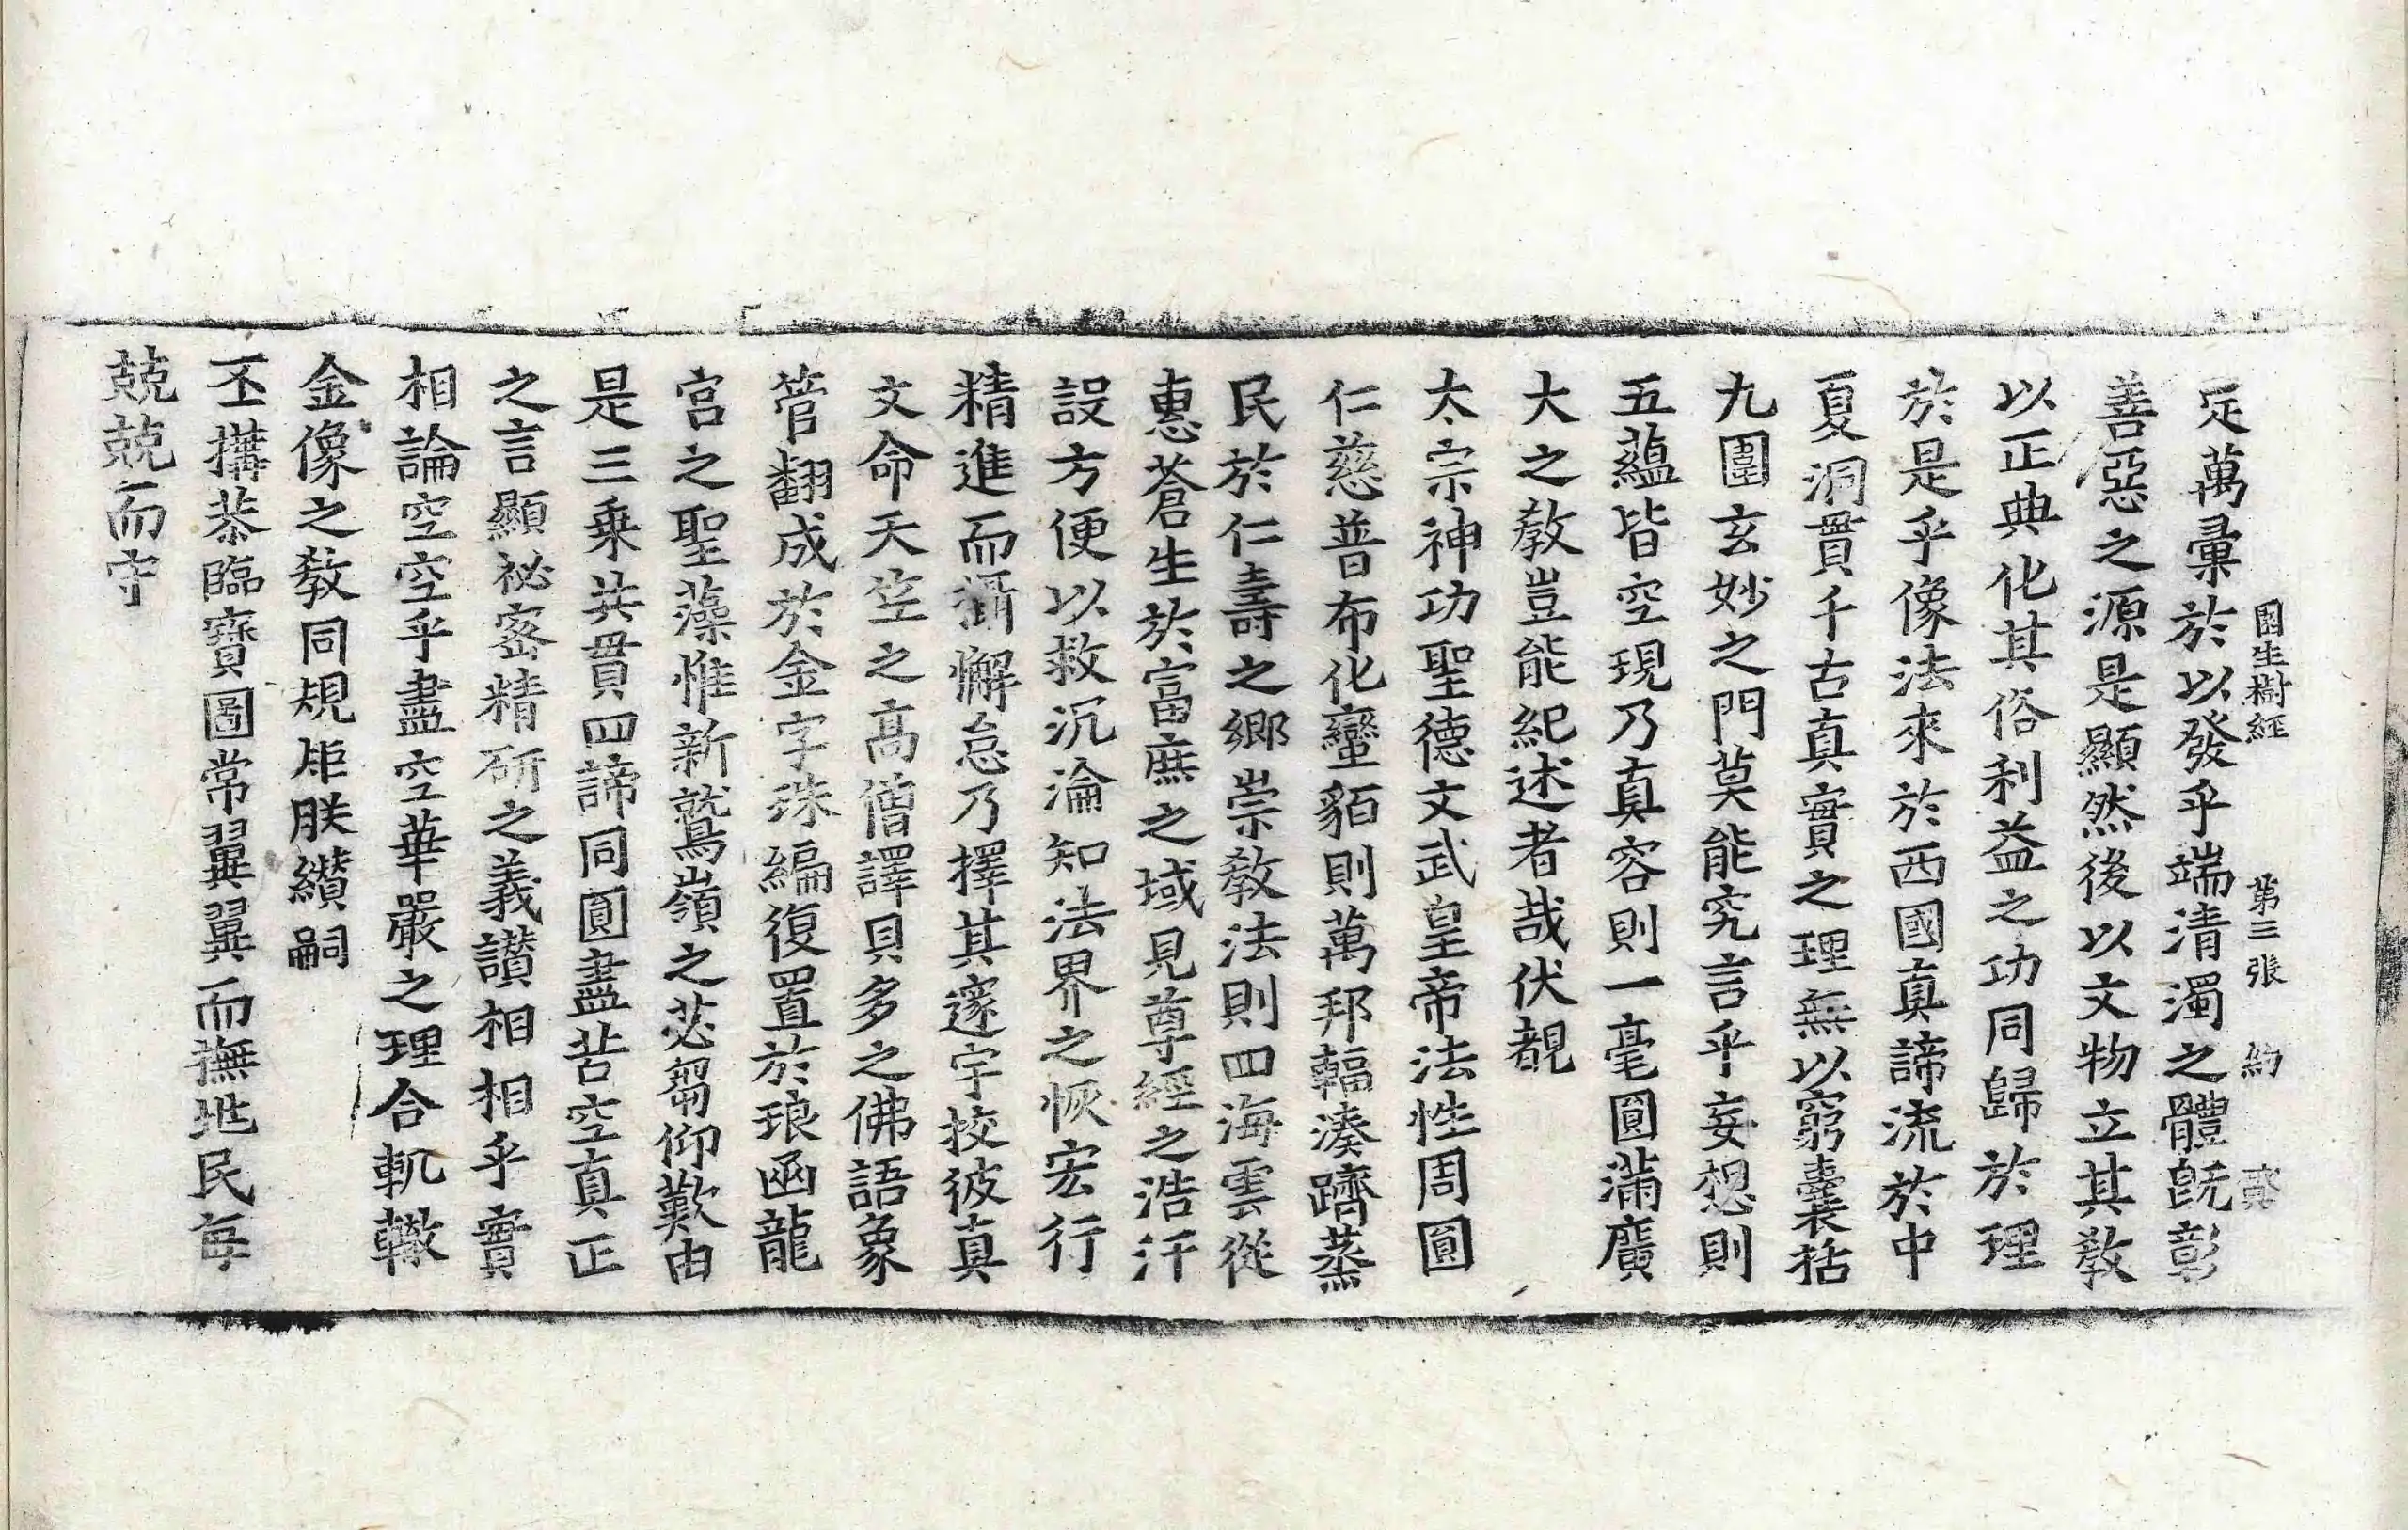 園生樹經 第三張 約
定萬彙於以發乎端清濁之體旣彰
善惡之源是顯然後以文物立其敎
以正典化其俗利益之功同歸於理
於是乎像法來於西國真諦流於中
夏洞貫千古真實之理無以窮囊括
九圍玄妙之門莫能究言乎妄想則
五蘊皆空現乃真容則一毫圓滿廣
大之敎豈能紀述者哉伏覩
太宗神功聖德文武皇帝法性周圓
仁慈普布化蠻貊則萬邦輻湊躋蒸
民於仁壽之鄉崇敎法則四海雲從
惠蒼生於富庶之域見尊經之浩汗
設方便以救沉淪知法界之恢宏行
精進而攝懈怠乃擇其邃宇挍彼真
文命天竺之高僧譯貝多之佛語象
管翻成於金字珠編復置於琅函龍
宮之聖藻惟新鷲嶺之苾芻仰歎由
是三乗共貫四諦同圓盡苦空真正
之言顯祕密精研之義讃相相乎實
相論空空乎盡空華嚴之理合軌轍
金像之敎同規矩朕纘嗣
丕搆恭臨寶圖常翼翼而撫兆民每
兢兢而守